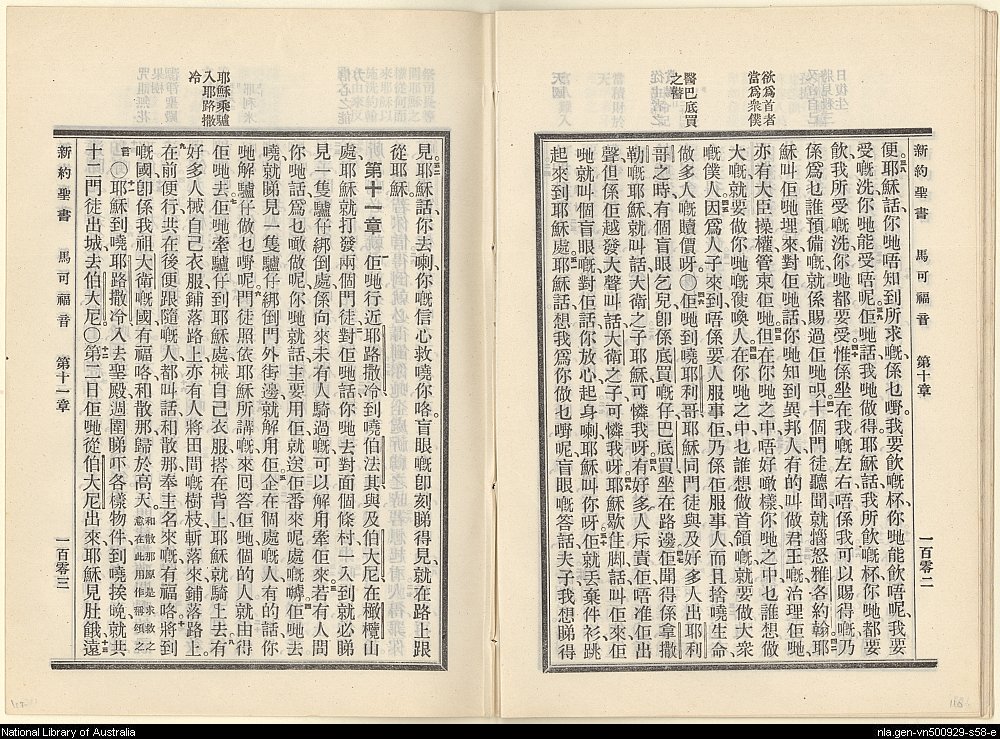 新約聖書 馬可福音 第十章 一百零二
欲爲首者
當爲衆僕
醫巴底買
之瞽
便耶穌話你哋唔知到所求嘅係乜嘢我要飲嘅杯你哋能飲唔呢我要
受嘅洗你哋能受唔呢佢哋話我哋做得耶穌話我所飲嘅杯你哋都要
飲我所受嘅洗你哋都要受惟係坐在我嘅左右唔係我可以賜得嘅乃
係爲乜誰預備嘅就係賜過佢哋呮十個門徒聽聞就惱怒雅各約翰耶
穌叫佢哋埋來對佢哋話你哋知到異邦人有的叫做君王嘅治理佢哋
亦有大臣操權管束佢哋但在你哋之中唔好噉樣你哋之中乜誰想做
大嘅就要做你哋嘅使喚人在你哋之中乜誰想做首領嘅就要做大衆
嘅僕人因爲人子來到唔係要人服事佢乃係佢服事人而且捨曉生命
做多人嘅贖價呀〇佢哋到曉耶利哥耶穌同門徒與及好多人出耶利
哥之時有個盲眼乞兒卽係底買嘅仔巴底買坐在路邊佢聞得係拿撒
勒嘅耶穌就叫話大衛之子耶穌可憐我呀有好多人斥責佢唔准佢出
聲但係佢越發大聲叫話大衛之子可憐我呀耶穌歇住脚話叫佢來佢
哋就叫個盲眼嘅對佢話你放心起身喇耶穌叫你呀佢就丟棄件衫跳
起來到耶穌處耶穌話想我爲你做乜嘢呢盲眼嘅答話夫子我想睇得
新約聖書 馬可福音 第十一章 一百零三
耶穌乘驢
入耶路撒
冷
見耶穌話你去喇你嘅信心救曉你咯盲眼嘅卽刻睇得見就在路上跟
從耶穌
第十一章 佢哋行近耶路撒冷到曉伯法其與及伯大尼在橄欖山
處耶穌就打發兩個門徒對佢哋話你哋去對面個條村一入到就必睇
見一隻驢仔綁倒處係向來未有人騎過嘅可以解甩牽佢來若有人問
你哋話爲乜噉做呢你哋就話主要用佢就送佢番來呢處嘅嚹佢哋去
曉就睇見一隻驢仔綁倒門外街邊就解甩佢企在個處嘅人有的話你
哋解驢仔做乜嘢呢門徒照依耶穌所講嘅來回答佢哋個的人就由得
佢哋去佢哋牽驢仔到耶穌處械自己衣服搭在背上耶穌就騎上去有
好多人械自己衣服鋪落路上亦有人將田間嘅樹枝斬落來鋪落路上
在前便行共在後便跟隨嘅人都叫話和散那奉主名來嘅有福咯將到
嘅國卽係我祖大衛嘅國有福咯和散那歸於高天和散那原是求救之意在此用作稱頌之
言〇耶穌到曉耶路撒冷入去聖殿週圍睇吓各樣物件到曉挨晚就共
十二門徒出城去伯大尼〇第二日佢哋從伯大尼出來耶穌見肚餓遠
National Library of Australia
nla.gen-vn500929-s58-e